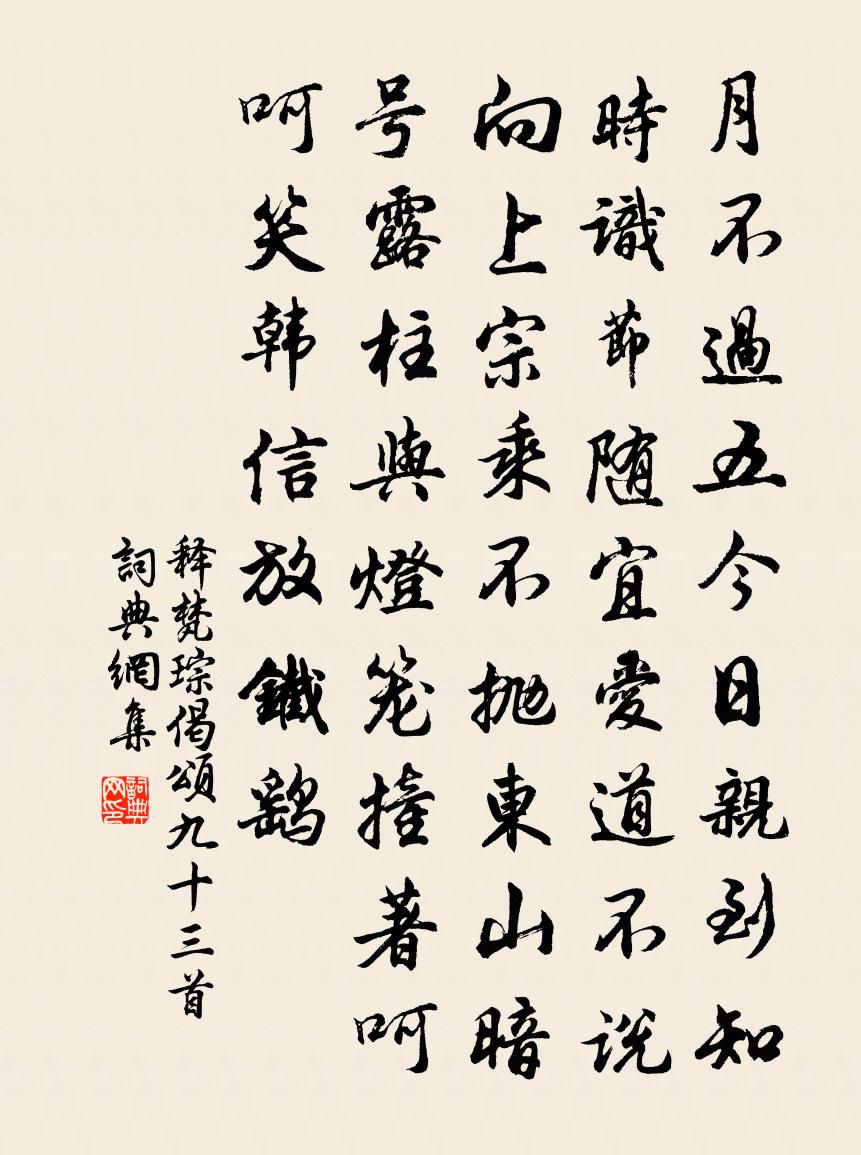 月不過五今日親到知
時識節随宜愛道不説
向上宗乘不抛東山暗
号露柱與燈笼撞著呵
呵笑韩信放鐵鷂
释梵琮偈頌九十三首
詞典網集
詞典
网印